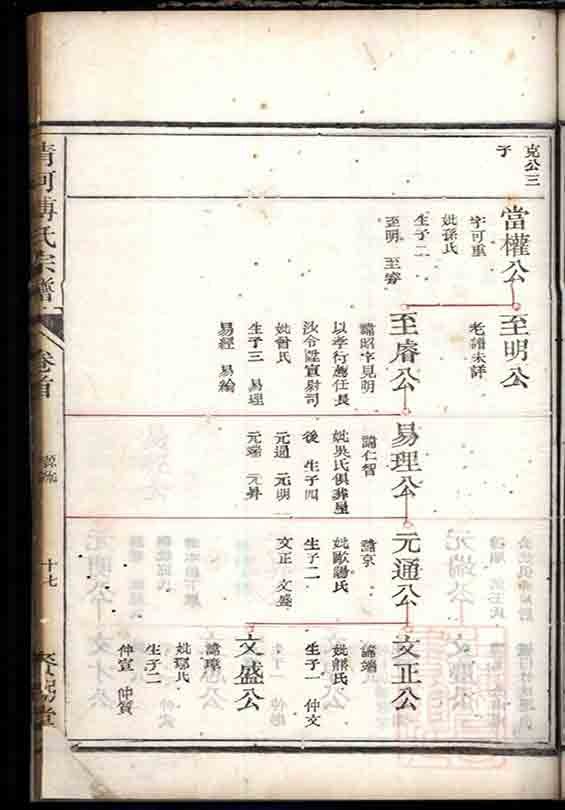 克公三
子
當權公
字可重
妣孫氏
生子二
至明 至睿
至明公
老譜未詳
至睿公
諱昭字見明
以孝行薦任長
沙令陞宣尉司
妣曾氏
生子三 易理
易經 易綸
易理公
諱仁智
妣吳氏俱葬屋
後 生子四
元通 元明
元端 元昇
元通公
諱京
妣歐陽氏
生子二
文正 文盛
文正公
諱端
妣熊氏
生子一 仲文
文盛公
諱璋
妣鄢氏
生子二
仲宣 仲質
清河傅氏宗譜
卷首
源流
十七